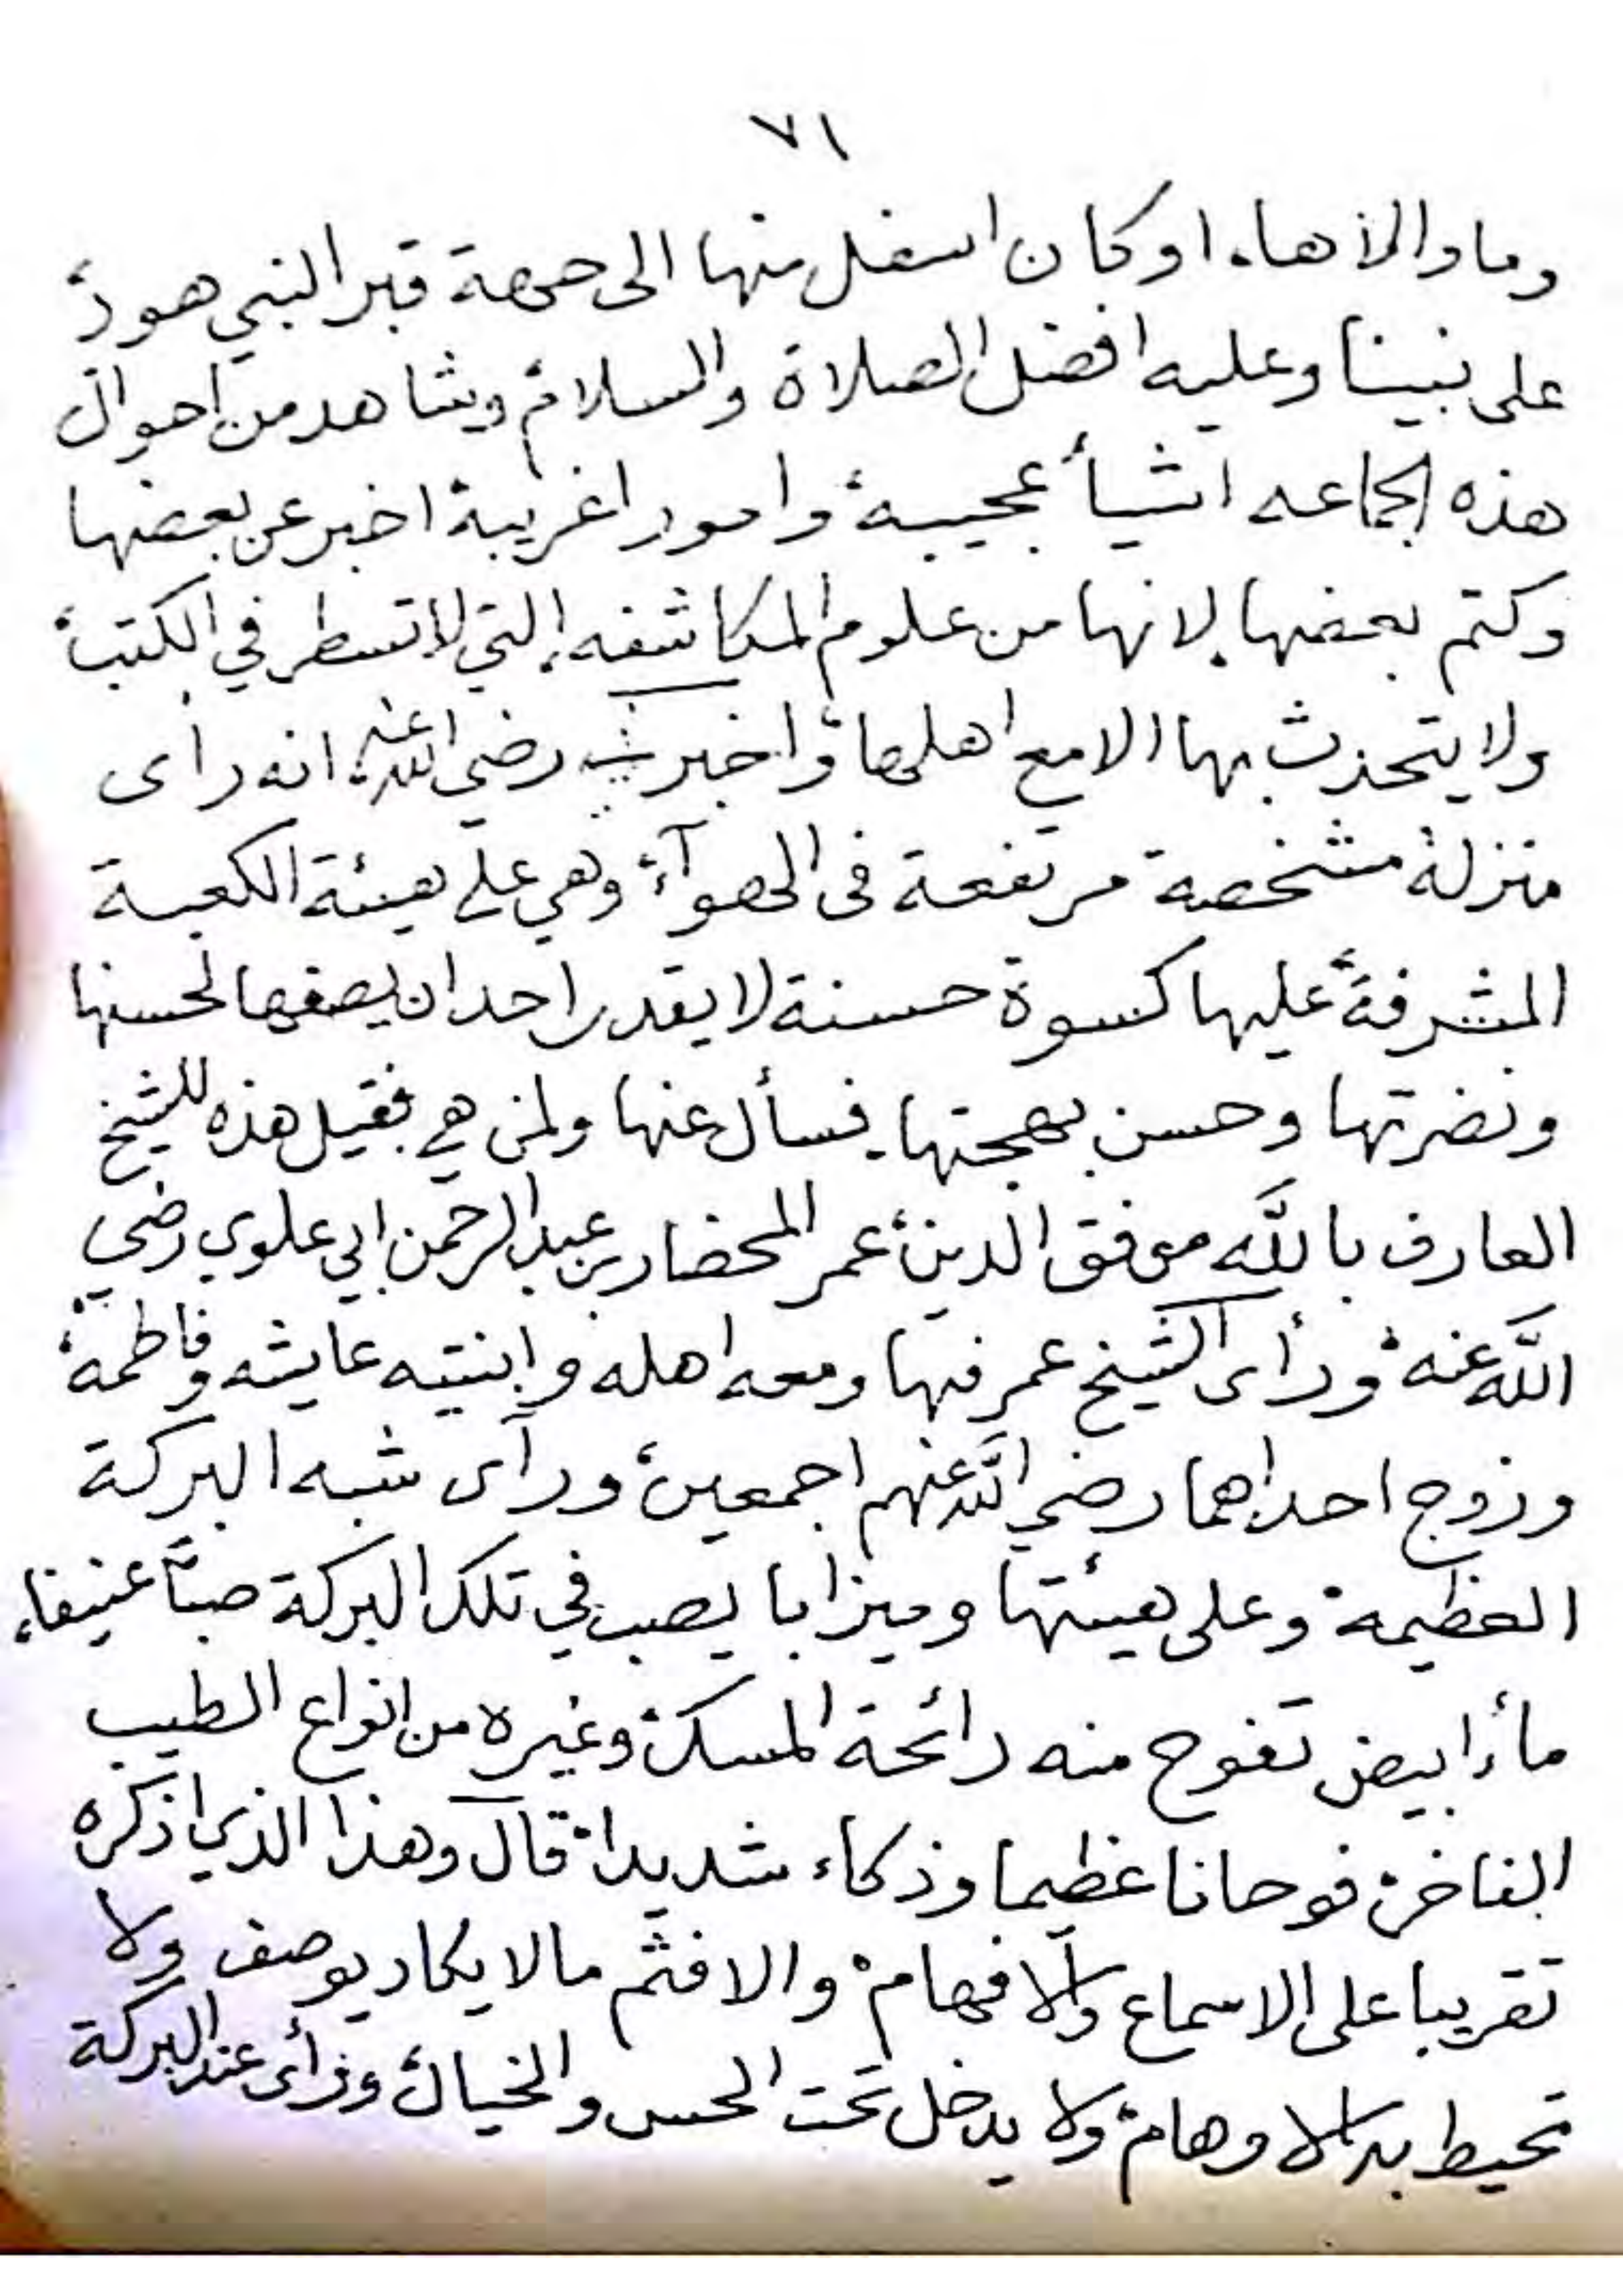 ٧١
وما والاها، او كان اسفل منها الى جهة قبر النبي هود،
على نبينا وعليه افضل الصلاة والسلام، ويشاهد من احوال
هذه الجماعه اشيأ عجيبة، وامورا غريبة، اخبر عن بعضها
وكتم بعضها، لانها من علوم المكاشفه، التي لا تسطر في الكتب،
ولا يتحدث بها الا مع اهلها، واخبرني رضي الله عنه، انه رأى
منزلة مشخصة مرتفعة فى الهوآء، وهي على هيئة الكعبة
المشرفة، عليها كسوة حسنة لا يقدر احد ان يصفها لحسنها
ونضرتها وحسن بهجتها. فسأل عنها ولمن هي فقيل هذه للشيخ
العارف بالله موفق الدين، عمر المحضار بن عبد الرحمن ابي علوي رضي
الله عنه، ورأى الشيخ عمر فيها ومعه اهله وابنتيه عايشه وفاطمة،
وزوج احداهما رضي الله عنهم اجمعين، ورآى شبه البركة
العظيمة، وعلى هيئتها وميزابا يصب في تلك البركة صبّا عنيفا،
مأء ابيض تفوح منه رائحة المسك، وغيره من انواع الطيب
الفاخر، فوحانا عظيما وذكاء شديدا، قال وهذا الذي اذكره
تقريبا على الاسماع والافهام، والا فثم مالا يكاد يوصف ولا
تحيط به الاوهام، ولا يدخل تحت الحس والخيال، ورأى عند البركة